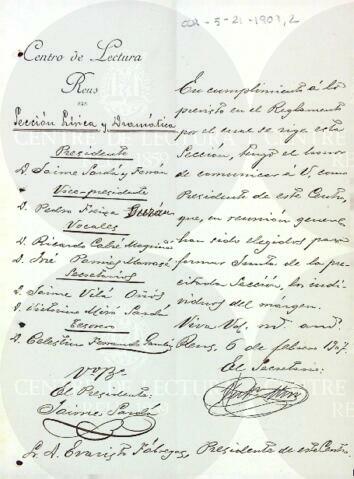 CCR-5-21-1907,2
Centro de Lectura
Reus
Sección Lírica y Dramática
Presidente
D. Jaime Sardá y Ferran
Vice-presidente
D. Pedro Freixa
Vocales
D. Ricardo Cabré
D. José Pamies
Secretarios
D. Jaime Vilá
D. Victorino Miró Sardá
Tesorero
D. Celestino Ferrando
VoBo
El Presidente:
Jaime Sardá
En cumplimiento á lo
previsto en el Reglamento
por el cual se rige esta
Sección, tengo el honor
de comunicar á V, como
Presidente de este Centro,
que, en reunión general
han sido elegidos para
formar Junta de la pre-
citada Sección, los indi-
viduos del margen.
Viva Vd. ms. ans.
Reus, 6 de febrero 1907.
El Secretario
Sr. D. Evaristo Fábregas, Presidente de este Centro.